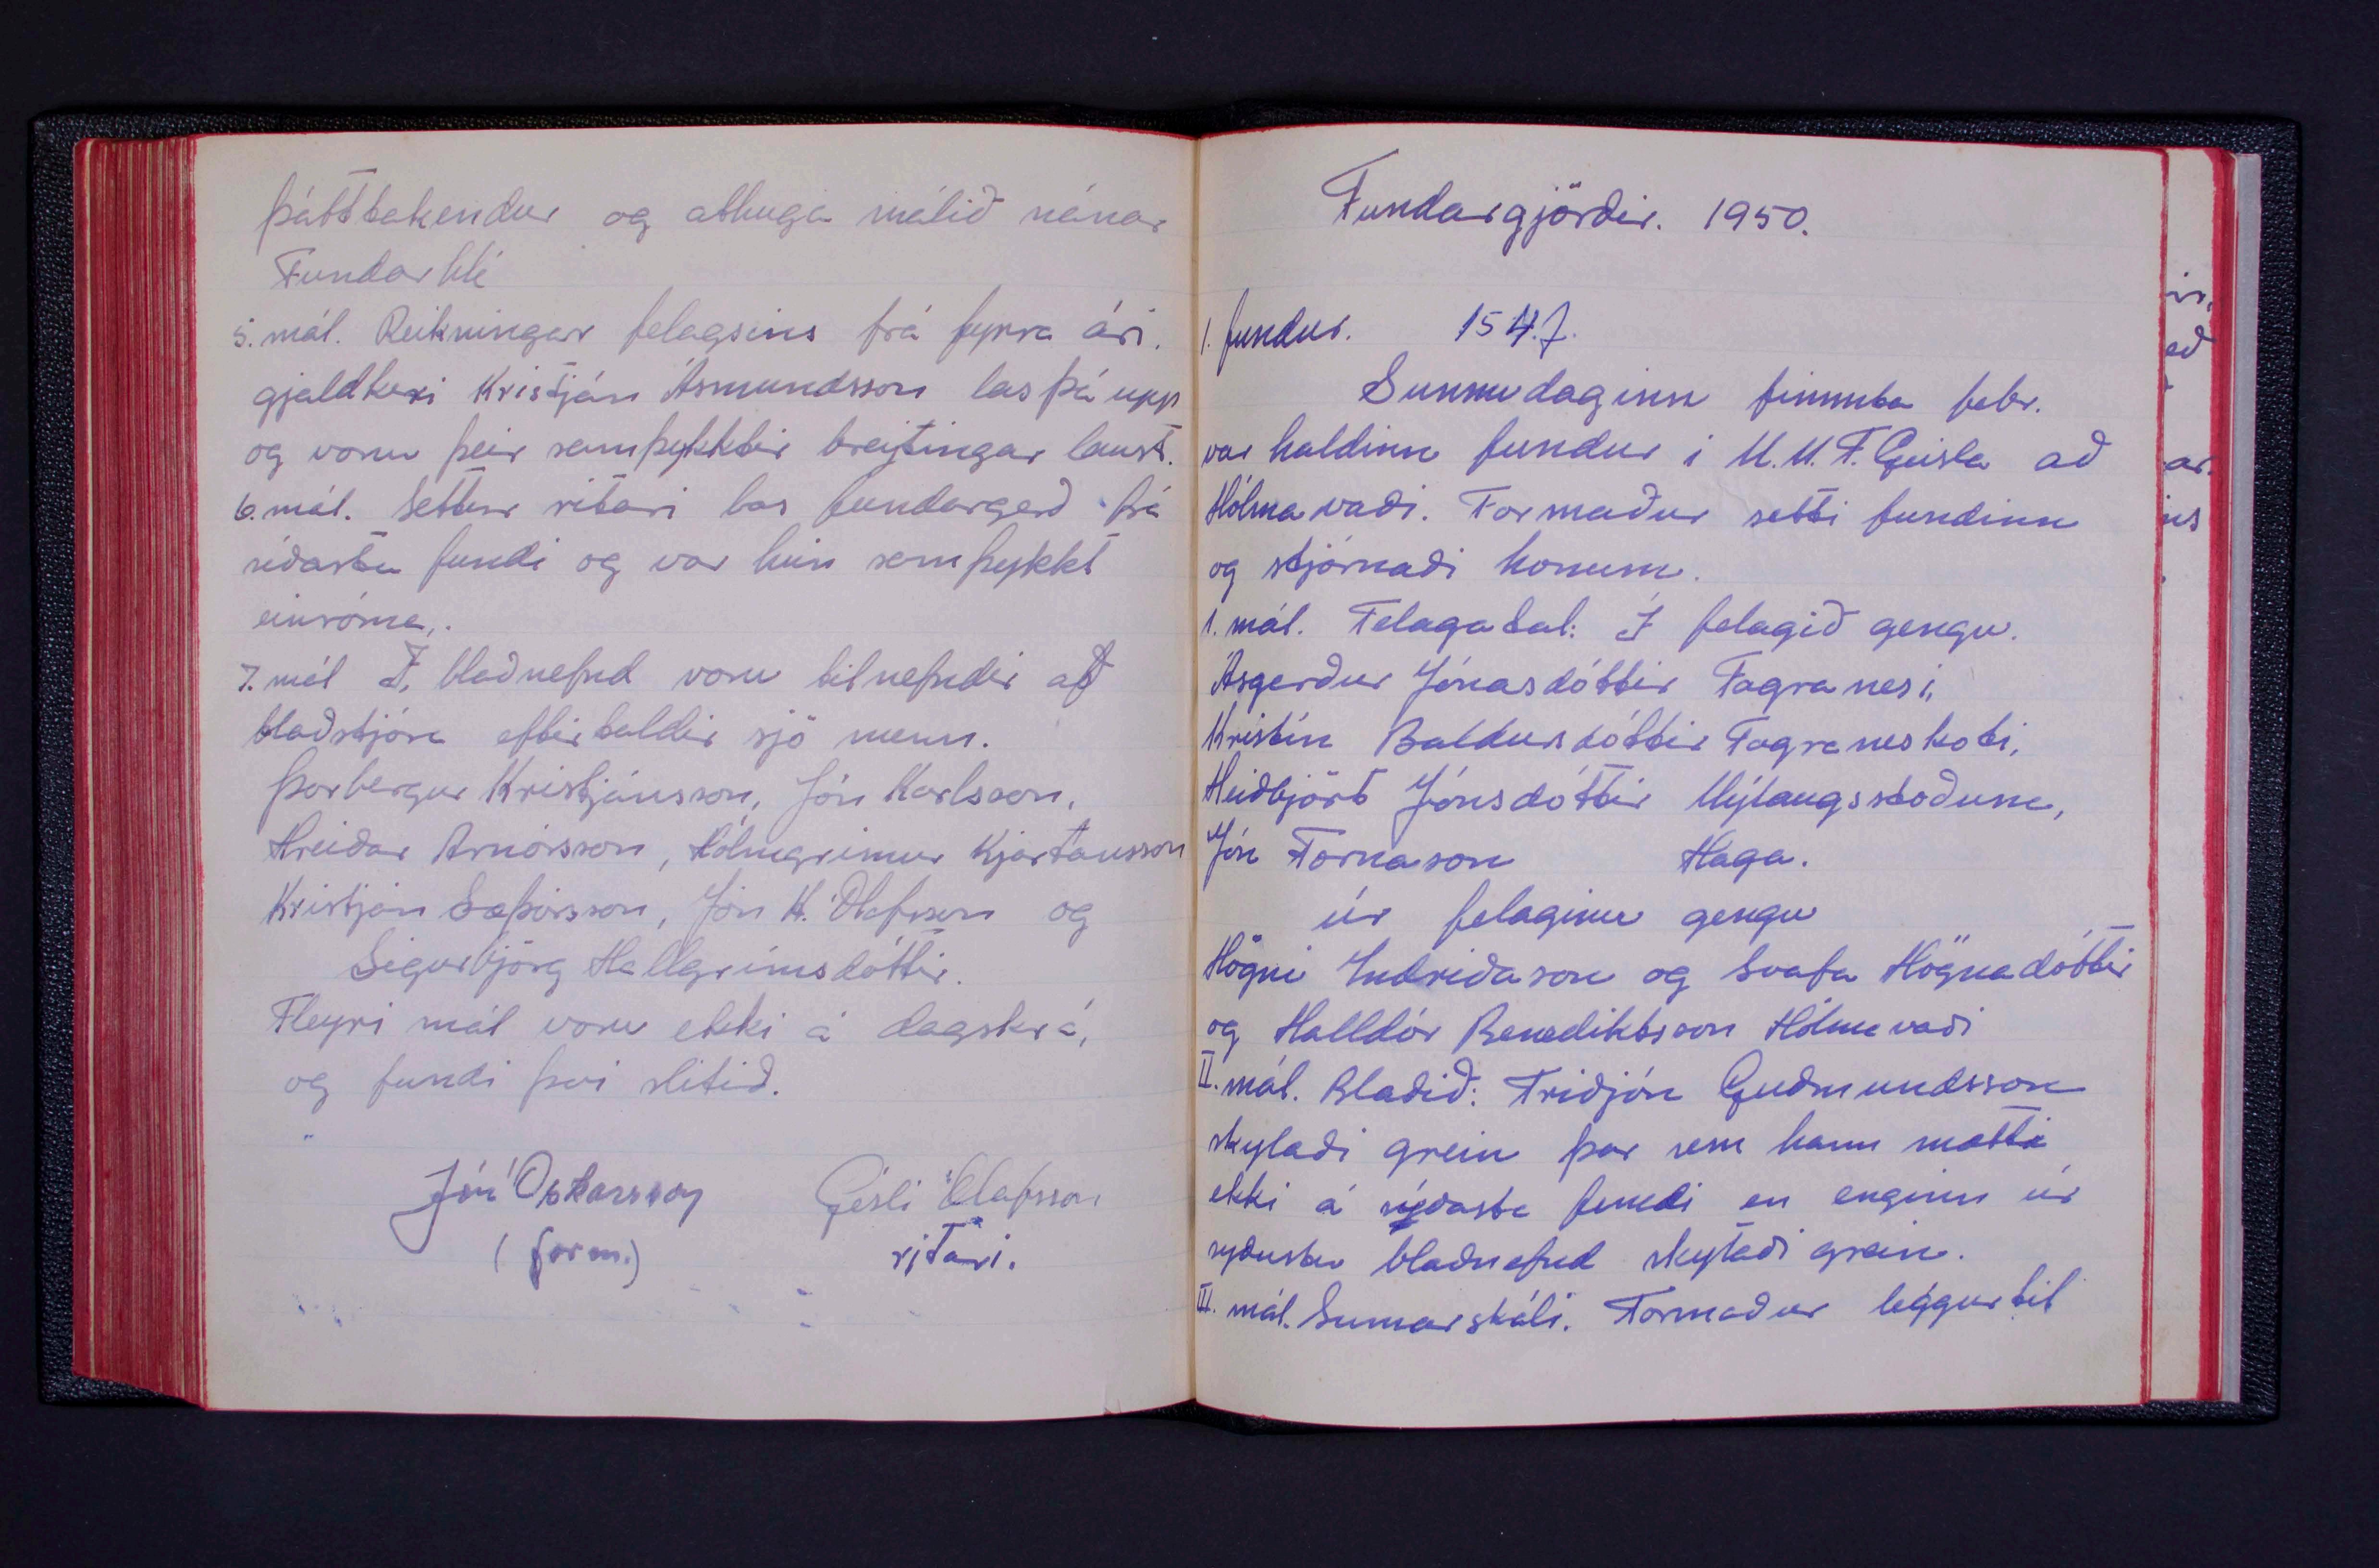 þátttakendur og athuga málið nánar
Fundarhlé
5. mál. Reikningar felagsins frá fyrra ári.
gjaldkeri Kristján Ásmundsson las þá upp
og voru þeir samþykktir breytingar laust.
6. mál. Settur ritari las fundargerð frá
síðasta fundi og var hún samþykkt
einróma.
7. mál Í blaðnefnd voru tilnefndir af
blaðstjóra eftirtaldir sjö menn.
Þorbergur Kristjánsson, Jón Karlsson,
Hreiðar Arnórsson, Hólmgrimur Kjartansson
Kristján Sæþórsson, Jón H. Ólafsson og
Sigurbjörg Hallgrímsdóttir.
Fleyri mál voru ekki á dagskrá,
og fundi því slitið.
Jón Óskarsson Gísli Ólafsson
(form.) ritari.
Fundargjörðir. 1950.
1. fundur. 154. f.
Sunnudaginn fimmta febr.
var haldinn fundur i U.M.F. Geisla að
Hólmavaði. Formaður setti fundinn
og stjórnaði honum.
1. mál. Felagatal: Í felagið gengu.
Ásgerður Jónasdóttir Fagranesi,
Kristín Baldursdóttir Fagraneskoti,
Heiðbjört Jónsdóttir Mýlaugsstoðum,
Jón Fornason Haga.
úr felaginu gengu
Högni Indriðason og Svafa Högnadóttir
og Halldór Benediktsson Hólmavaði
II. mál. Blaðið: Friðjón Guðmundsson
skylaði grein þar sem hann mætti
ekki á síðasta fundi en enginn úr
syðustu blaðnefnd skylaði grein.
III. mál. Sumarskáli. Formaður leggur til
ir,
að
ar.
ins